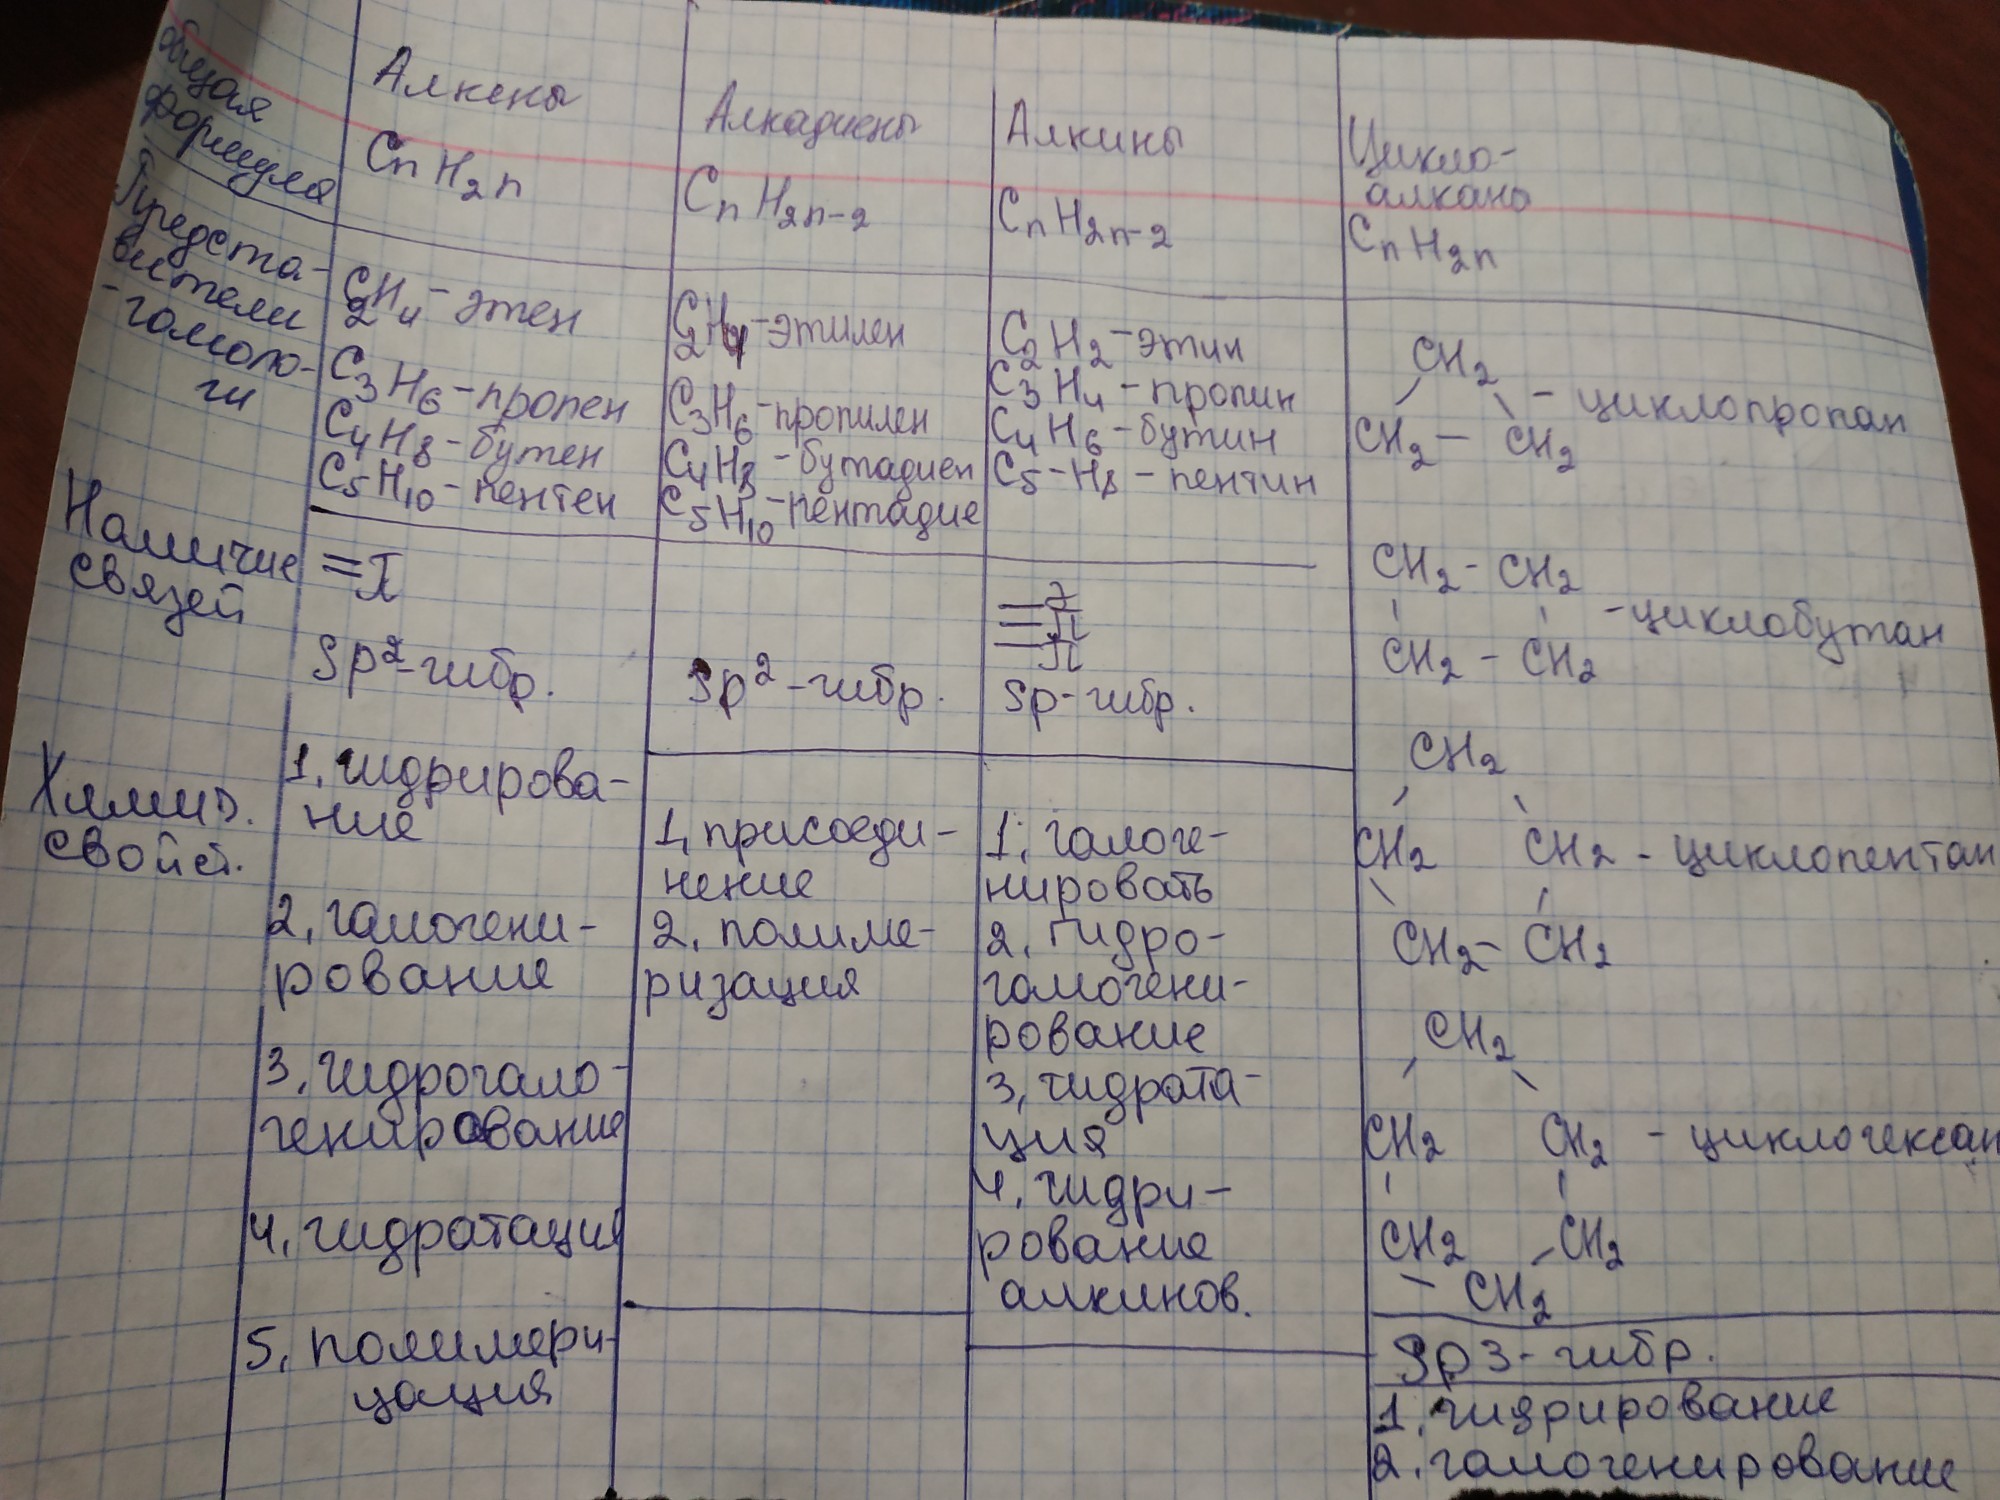 Общая
формула
Алкены
CnH2n
Алкадиены
CnH2n-2
Алкины
CnH2n-2
Цикло-
алканы
CnH2n
Предста-
вители
-гомоло-
ги
C2H4 - этен
C3H6 - пропен
C4H8 - бутен
C5H10 - пентен
C2H4 - этилен
C3H6 - пропилен
C4H8 - бутадиен
C5H10 - пентадие
C2H2 - этин
C3H4 - пропин
C4H6 - бутин
C5-H8 - пентин
CH2
- циклопропан
CH2 - CH2
CH2 - CH2
- циклобутан
CH2 - CH2
CH2
CH2 CH2 - циклопентан
CH2 - CH2
CH2
CH2 CH2 - циклогексан
CH2 - CH2
CH2
Наличие
связей
= π
Sp2-гибр.
Sp2-гибр.
π
π
Sp-гибр.
Sp3-гибр.
Химич.
свойст.
1. гидрирова-
ние
2. галогени-
рование
3. гидрогало-
генирование
4. гидратация
5. полимери-
зация
1, присоеди-
нение
2. полиме-
ризация
1. галоге-
нировать
2. гидро-
галогени-
рование
3, гидрата-
ция
4, гидри-
рование
алкинов.
1. гидрирование
2. галогенирование